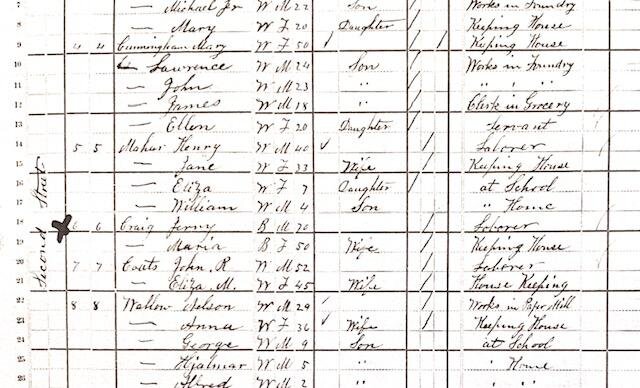 7 — Michael Jr W M 22 Son / Works in Foundry
8 — Mary W F 20 Daughter / Keeping House
9 4 4 Cunningham Mary W F 50 / / Keeping House
10 — Lawrence W M 24 Son / Works in Foundry
11 — John W M 23 " / " " "
12 — James W M 18 " / Clerk in Grocery
13 — Ellen W F 20 Daughter / Servant
14 5 5 Maher Henry W M 40 / Laborer
15 — Jane W F 33 Wife / Keeping House
16 — Eliza W F 7 Daughter / at School
17 — William W M 4 Son " Home
18 6 6 Craig Jerry B M 70 / Laborer
19 — Maria B F 50 Wife / Keeping House
20 7 7 Coats John R W M 52 / Laborer
21 — Eliza M. W F 45 Wife / House Keeping
22 8 8 Wallow Nelson W M 29 / Works in Paper Mill
23 — Anna W F 36 Wife / Keeping House
24 — George W M 9 Son at School
25 — Hjalmar W M 5 " " Home
26 — Alfred W M 2 " " "
Second Street